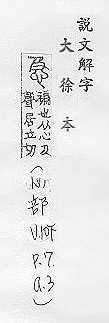 說文解字
大徐本
褊也从心及
聲居立切
(心部 V.10下 P.7. a.3)